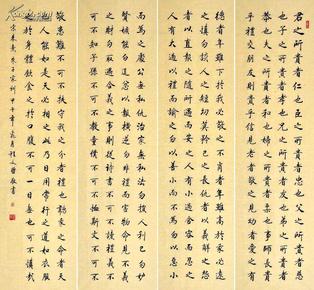 君之所貴者仁也臣之所貴者忠也父之所貴者慈
也子之所貴者孝也兄之所貴者友也弟之所貴者
恭也夫之所貴者和也婦之所貴者柔也事師長貴
乎禮也交朋友貴乎信也見老者敬之見幼者愛之有
德者年雖下於我必敬之不肖者年雖高於我必遠
之慎勿談人之短切莫矜己之長仇者以義解之怨
者以直報之隨所遇而安之人有小過含容而忍之
人有大過以理而諭之勿以善小而不為勿以惡小
而為之處公無私仇治家無私法勿損人利己勿妒
賢嫉能勿逞忿而報橫逆勿非禮而害物命見不義
之財勿取遇合義之事則從詩書不可不讀禮義不
可不知子孫不可不教童僕不可不恤斯文不可不
敬患難不可不扶守我之分者禮也聽我之命者天
也人能如是天必相之此乃日用常行之道如衣服
之於身體飲食之於口腹不可一日無也可不慎哉
宋朱熹 朱子家訓 甲午年 敬書